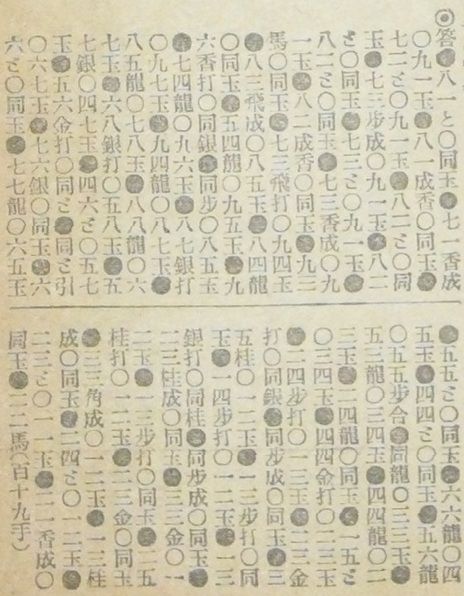 ◎答●八一と〇同玉●七一香成
〇九一玉●八一成香〇同玉●
七二と〇九一玉●八二と〇同
玉●七三歩成〇九一玉●八二
と〇同玉●七三と〇九一玉●
八二と〇同玉●七三香成〇九
一玉●八二成香〇同玉●九三
馬〇同玉●七三飛打〇九四玉
●八三飛成〇八五玉●八四龍
〇同玉●五四龍〇九五玉●九
六香打〇同銀●同歩〇八五玉
●七四龍〇九六玉●八七銀打
〇九七玉●九四龍〇八七玉●
八五龍〇七八玉●八八龍〇六
七玉●六八銀打〇五八玉●五
七銀〇四七玉●四六と〇五七
玉●五六金打〇同と●同と引
〇六七玉●七六銀〇同玉●六
六と〇同玉●七七龍〇六五玉
●五五と〇同玉●六六龍〇四
五玉●四四と〇同玉●五六龍
〇五五歩合●同龍〇三三玉●
五三龍〇三四玉●四四龍〇二
三玉●二四龍〇同玉●一五と
〇三四玉●四四金打〇二三玉
●二四歩打〇一三玉●二三金
打〇同銀●同歩成〇同玉●三
五桂〇一二玉●一三歩打〇同
玉●一四歩打〇一二玉●一三
銀打〇同桂●同歩成〇同玉●
二三桂成〇同玉●三三金〇一
二玉●一三歩打〇同玉●二五
桂打〇一二玉●二三金〇同玉
●三三角成〇一二玉●一三桂
成〇同玉●二四と〇一二玉●
二三と〇一一玉●二一香成〇
同玉●二二馬(百十九手)